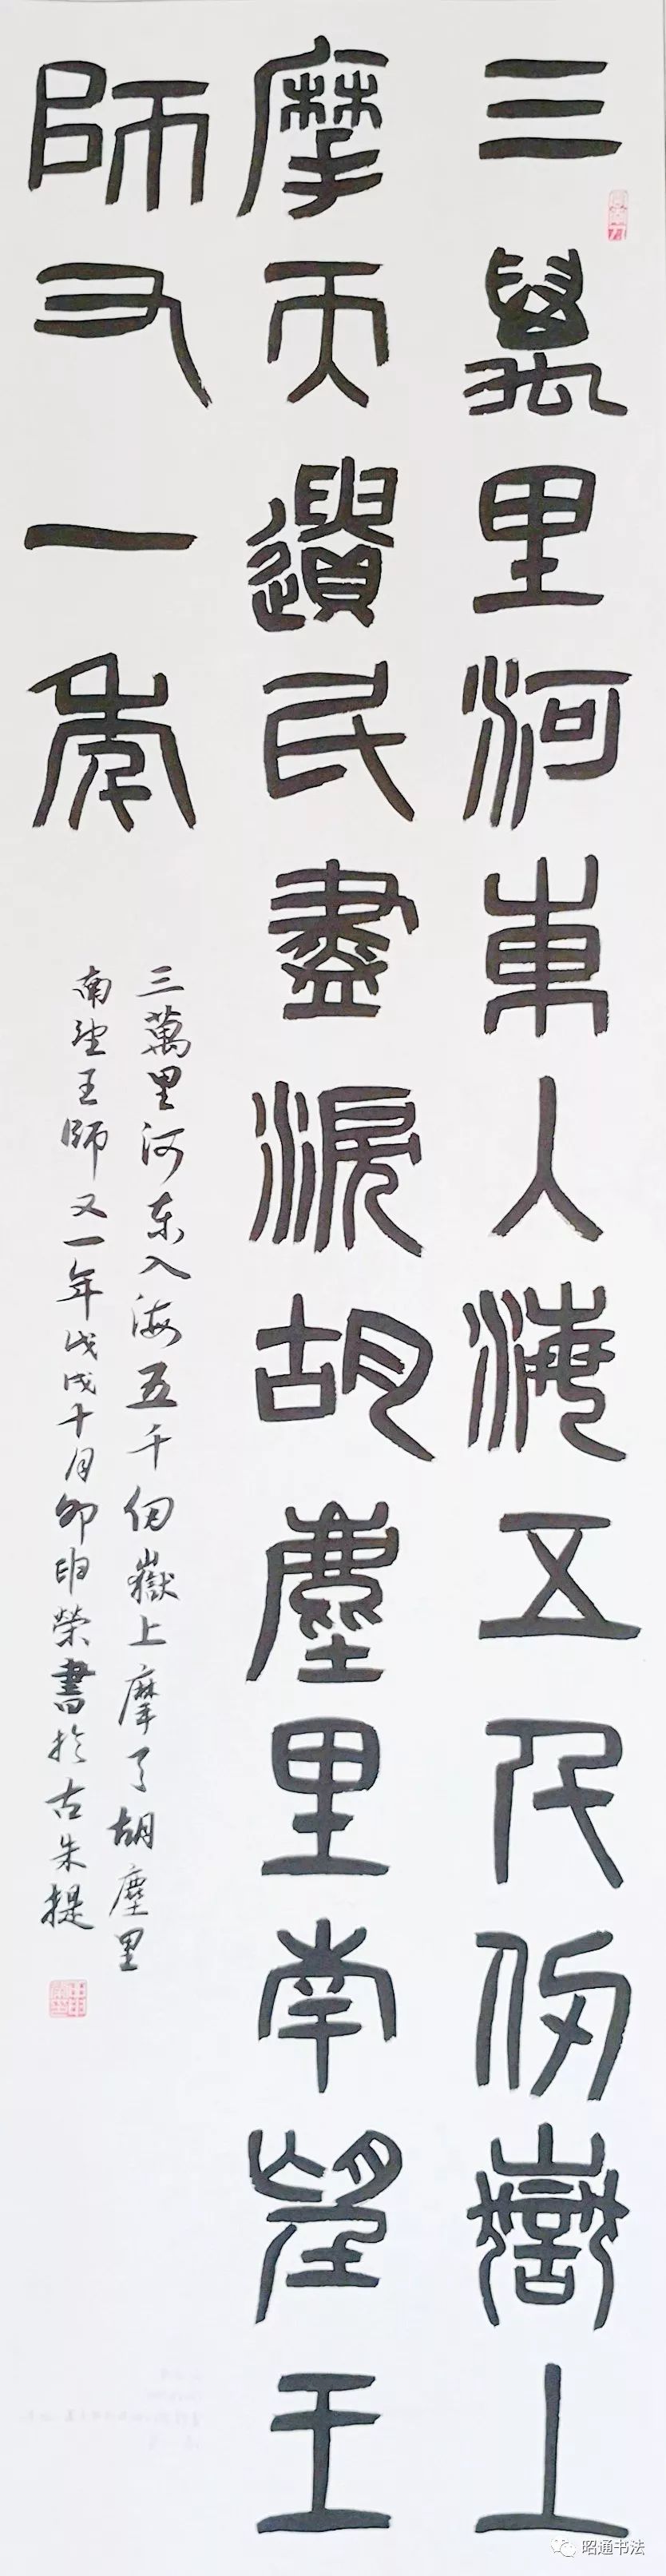 三萬里河東入海五千仞嶽上
摩天遺民盡淚胡塵里南望王
師又一年
三萬里河东入海五千仞嶽上摩天胡塵里
南望王師又一年戊戌十月卯申榮書於古朱提
昭通书法